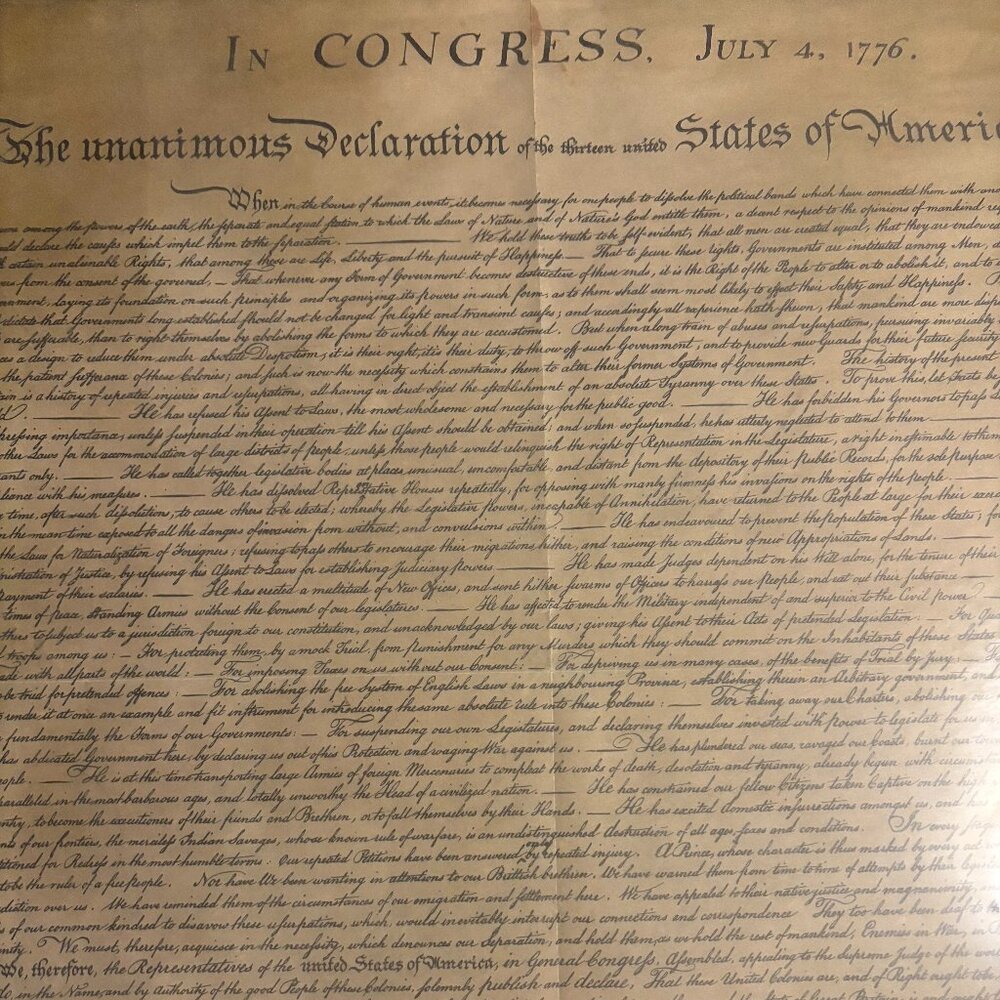 In CONGRESS, July 4, 1776.
The unanimous Declaration of the thirteen united States of Ameri
When in the Course of human events, it becomes necessary for one people to dissolve the political bands which have connected them with
among the powers of the earth, the separate and equal station to which the Laws of Nature and of Nature's God entitle them, a decent respect to the opinions of mankind
declare the causes which impel them to the separation. ——— We hold these truths to be self-evident, that all men are created equal, that they are endowed
certain unalienable Rights, that among these are Life, Liberty and the pursuit of Happiness. — That to secure these rights, Governments are instituted among Men,
from the consent of the governed, — That whenever any Form of Government becomes destructive of these ends, it is the Right of the People to alter or to abolish it, and to
laying its foundation on such principles and organizing its powers in such form, as to them shall seem most likely to effect their Safety and Happiness.
dictate that Governments long established should not be changed for light and transient causes; and accordingly all experience hath shewn, that mankind are more disp
are sufferable, than to right themselves by abolishing the forms to which they are accustomed. But when a long train of abuses and usurpations, pursuing invariably
a design to reduce them under absolute Despotism, it is their right, it is their duty, to throw off such Government, and to provide new Guards for their future security
the patient sufferance of these Colonies; and such is now the necessity which constrains them to alter their former Systems of Government. The history of the present
is a history of repeated injuries and usurpations, all having in direct object the establishment of an absolute Tyranny over these States. To prove this, let Facts be
——— He has refused his Assent to Laws, the most wholesome and necessary for the public good. ——— He has forbidden his Governors to pass
pressing importance, unless suspended in their operation till his Assent should be obtained; and when so suspended, he has utterly neglected to attend to them ———
other Laws for the accommodation of large districts of people, unless those people would relinquish the right of Representation in the Legislature, a right inestimable to them
only. ——— He has called together legislative bodies at places unusual, uncomfortable, and distant from the depository of their Public Records, for the sole purpose
with his measures. ——— He has dissolved Representative Houses repeatedly, for opposing with manly firmness his invasions on the rights of the people. ———
time, after such dissolutions, to cause others to be elected; whereby the Legislative powers, incapable of Annihilation, have returned to the People at large for their
in the mean time exposed to all the dangers of invasion from without, and convulsions within. ——— He has endeavoured to prevent the population of these States;
the Laws for Naturalization of Foreigners; refusing to pass others to encourage their migrations hither, and raising the conditions of new Appropriations of Lands. ———
of Justice, by refusing his Assent to Laws for establishing Judiciary powers. ——— He has made Judges dependent on his Will alone, for the tenure of their
payment of their salaries. ——— He has erected a multitude of New Offices, and sent hither swarms of Officers to harrass our People, and eat out their substance ———
times of peace, Standing Armies without the Consent of our legislatures. — He has affected to render the Military independent of and superior to the Civil power. ———
others to subject us to a jurisdiction foreign to our constitution, and unacknowledged by our laws; giving his Assent to their Acts of pretended Legislation: — For
troops among us: — For protecting them, by a mock Trial, from punishment for any Murders which they should commit on the Inhabitants of these States
with all parts of the world: — For imposing Taxes on us without our Consent: — For depriving us in many cases, of the benefits of Trial by Jury: —
to be tried for pretended offences: — For abolishing the free System of English Laws in a neighbouring Province, establishing therein an Arbitrary government, and
render it at once an example and fit instrument for introducing the same absolute rule into these Colonies: — For taking away our Charters, abolishing
fundamentally the Forms of our Governments: — For suspending our own Legislatures, and declaring themselves invested with power to legislate for us
has abdicated Government here, by declaring us out of his Protection and waging War against us. — He has plundered our seas, ravaged our Coasts, burnt our
people. ——— He is at this time transporting large Armies of foreign Mercenaries to compleat the works of death, desolation and tyranny, already begun with circumstan
paralleled in the most barbarous ages, and totally unworthy the Head of a civilized nation. ——— He has constrained our fellow Citizens taken Captive on the high
to become the executioners of their friends and Brethren, or to fall themselves by their Hands. — He has excited domestic insurrections amongst us, and has
of our frontiers, the merciless Indian Savages, whose known rule of warfare, is an undistinguished destruction of all ages, sexes and conditions. In every stage
for Redress in the most humble terms: Our repeated Petitions have been answered only by repeated injury. A Prince, whose character is thus marked by every act
to be the ruler of a free people. Nor have We been wanting in attentions to our Brittish brethren. We have warned them from time to time of attempts by their
over us. We have reminded them of the circumstances of our emigration and settlement here. We have appealed to their native justice and magnanimity,
of our common kindred to disavow these usurpations, which, would inevitably interrupt our connections and correspondence They too have been deaf to
We must, therefore, acquiesce in the necessity, which denounces our Separation, and hold them, as we hold the rest of mankind, Enemies in War, in
We, therefore, the Representatives of the united States of America, in General Congress, Assembled, appealing to the Supreme Judge of the
do, in the Name, and by Authority of the good People of these Colonies, solemnly publish and declare, That these United Colonies are, and of Right ought to be